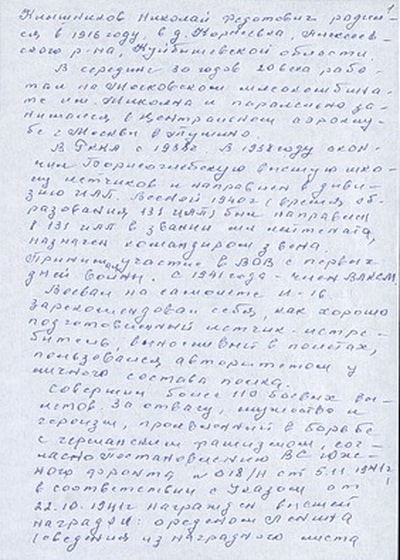 1
Клышников Николай Федотович родил-
ся в 1916 году, в д. Корнеевка, Алексеев-
ского р-на, Куйбышевской области.
В середине 30 годов 20 века рабо-
тал на Московском мясокомбина-
те им. Микояна и параллельно за-
нимался в Центральном аэроклу-
бе г. Москвы в Тушино.
В РККА с 1938г. В 1938 году окон-
чил Борисоглебскую высшую шко-
лу летчиков и направлен в диви-
зию ИАП. Весной 1940г (время об-
разования 131 ИАП) был направлен
в 131 ИАП в звании мл лейтенанта,
назначен командиром звена.
Принимал участие в ВОВ с первых
дней войны. С 1941 года - член ВЛКСМ.
Воевал на самолете И-16.
зарекомендовал себя, как хорошо
подготовленный летчик-истре-
битель, выносливый в полетах,
пользовался авторитетом у
личного состава полка.
Совершил более 110 боевых вы-
летов. За отвагу, мужество и
героизм, проявленный в борьбе
с германским фашизмом, сог-
ласно Постановлению ВС Юж-
ного фронта, № 018/Н от 5.11.1941г
в соответствии с Указом от
22.10.1941г награжден высшей
наградой: орденом Ленина
(сведения из наградного листа